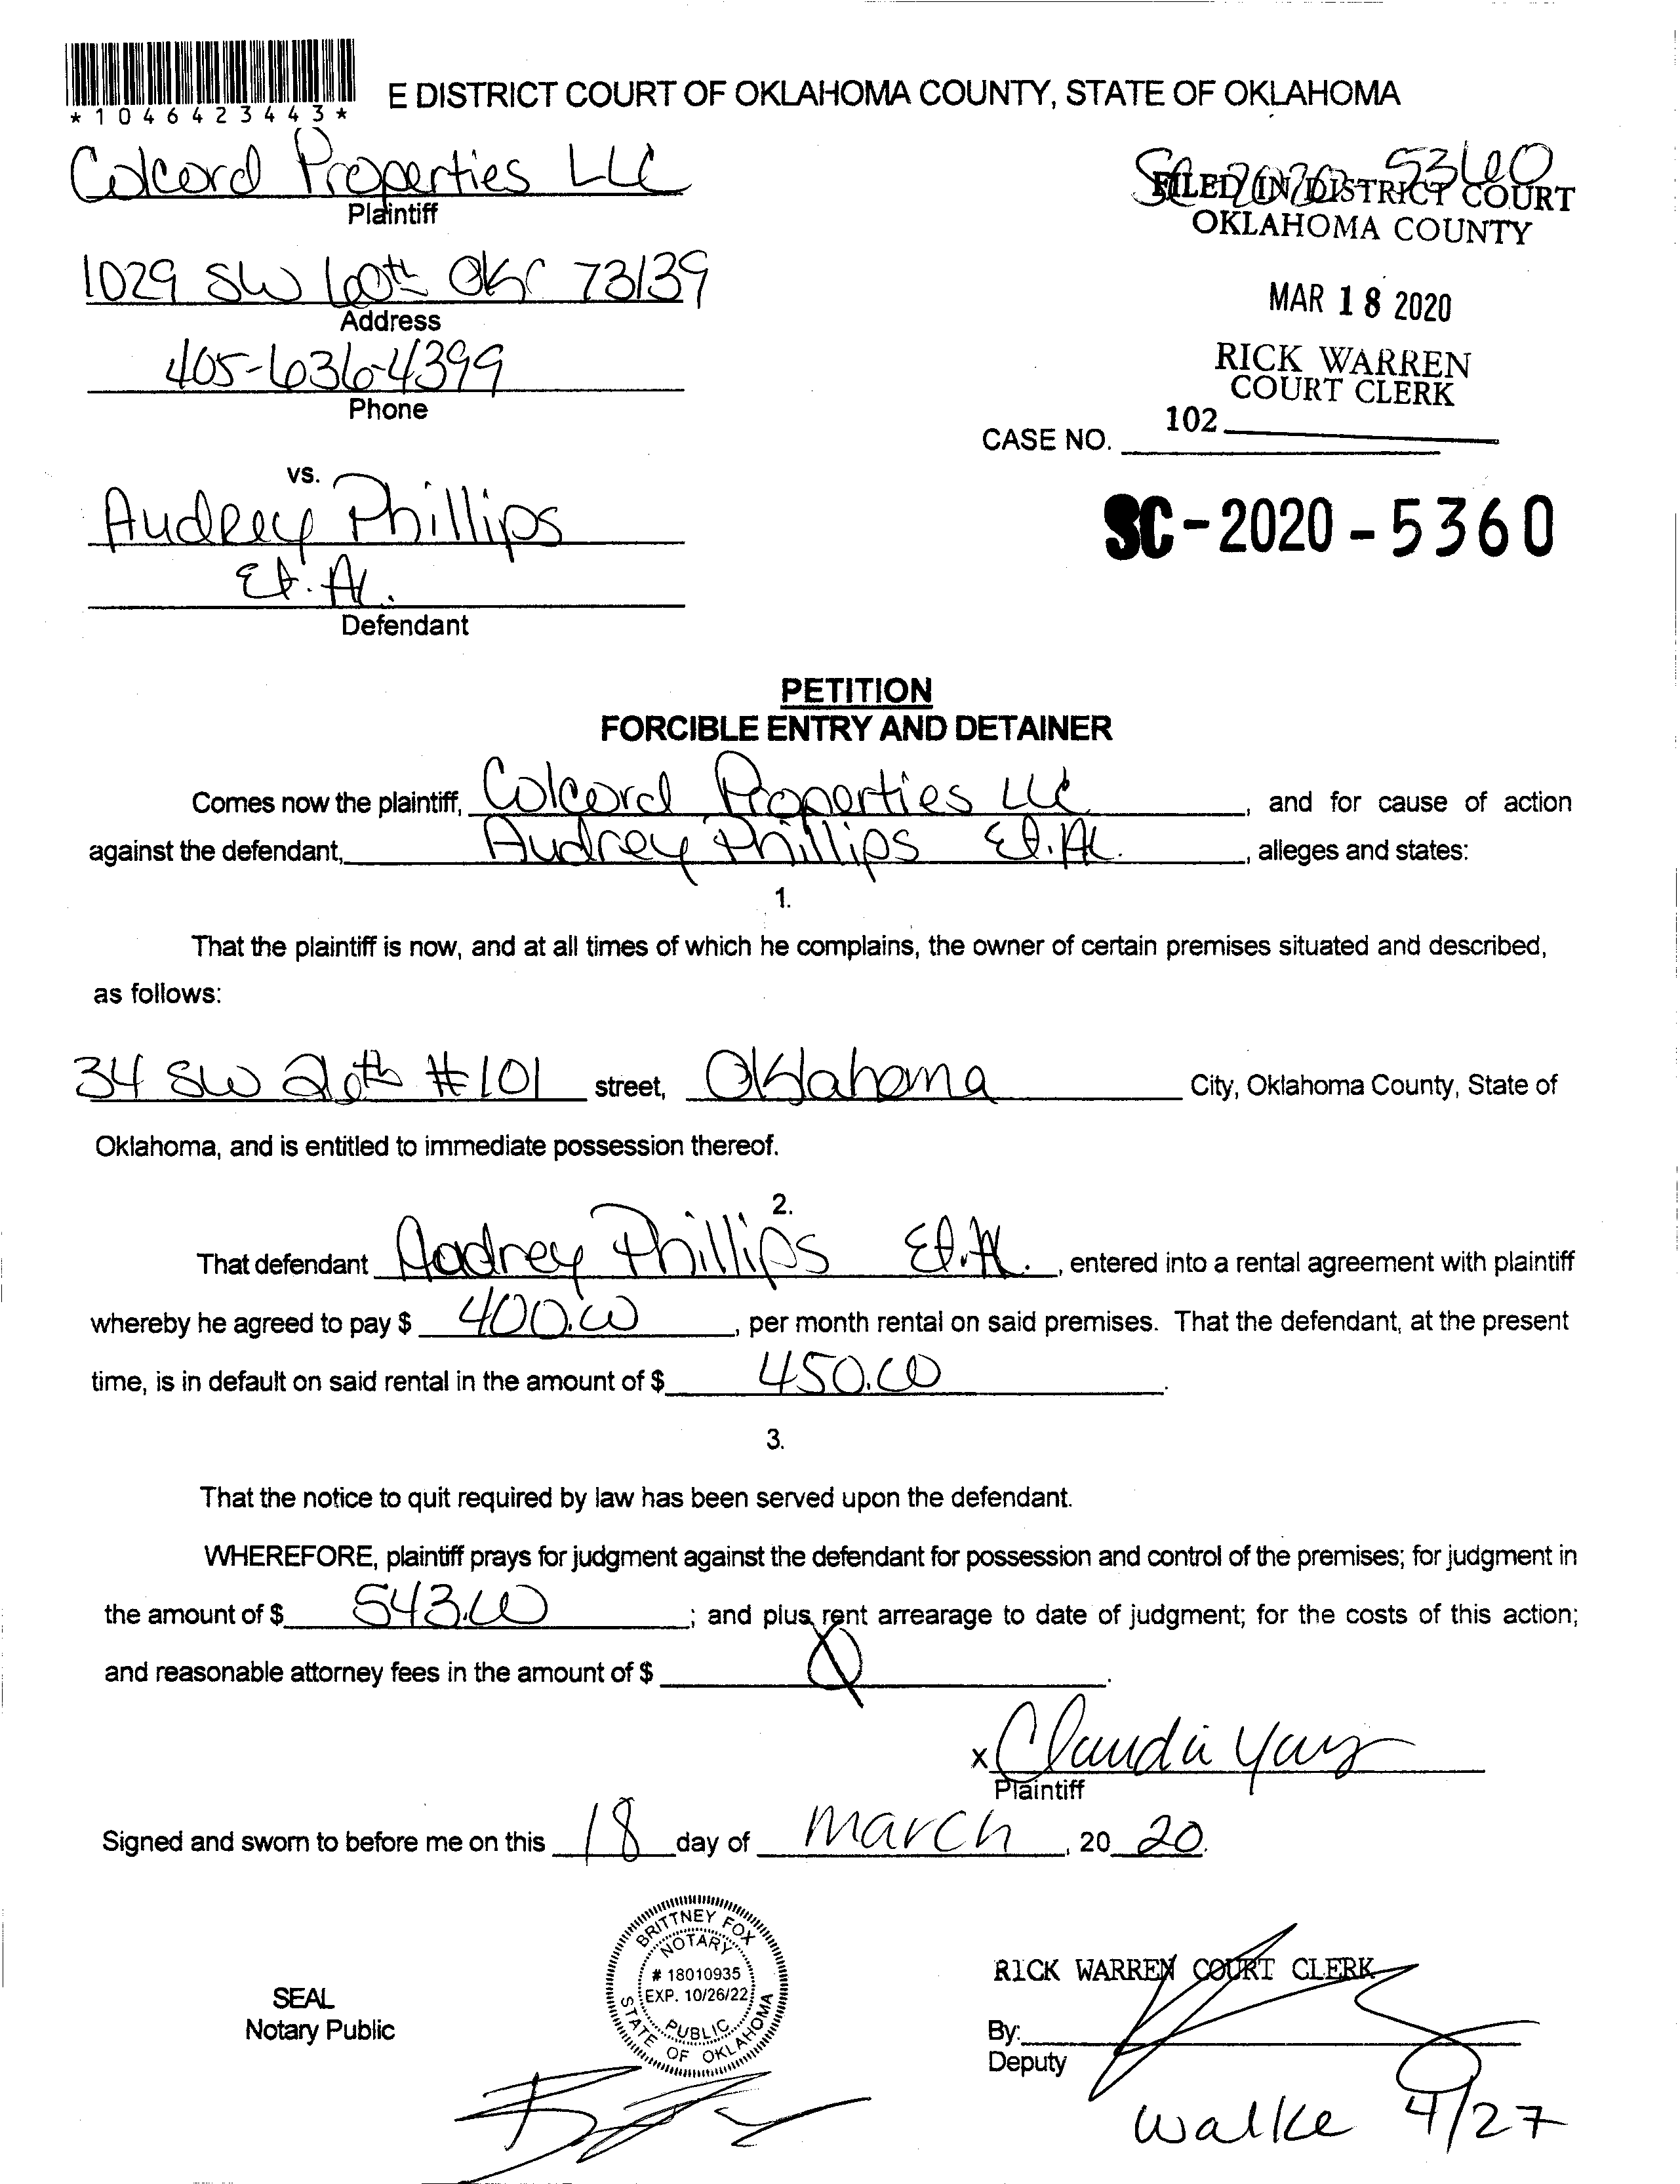 *1046423443*
E DISTRICT COURT OF OKLAHOMA COUNTY, STATE OF OKLAHOMA
Colcord Properties LLC
Plaintiff
SC-2020-5360
FILED IN DISTRICT COURT
OKLAHOMA COUNTY
1029 SW 60th OKC 73139
Address
MAR 18 2020
405-636-4399
Phone
RICK WARREN
COURT CLERK
102
CASE NO.
vs.
Audrey Phillips
Et. Al.
Defendant
SC-2020-5360
PETITION
FORCIBLE ENTRY AND DETAINER
Comes now the plaintiff, Colcord Properties LLC, and for cause of action
against the defendant, Audrey Phillips Et. Al., alleges and states:
1.
That the plaintiff is now, and at all times of which he complains, the owner of certain premises situated and described,
as follows:
34 SW 20th #101 street, Oklahoma City, Oklahoma County, State of
Oklahoma, and is entitled to immediate possession thereof.
2.
That defendant Audrey Phillips Et. Al., entered into a rental agreement with plaintiff
whereby he agreed to pay $ 400.00, per month rental on said premises. That the defendant, at the present
time, is in default on said rental in the amount of $ 450.00.
3.
That the notice to quit required by law has been served upon the defendant.
WHEREFORE, plaintiff prays for judgment against the defendant for possession and control of the premises; for judgment in
the amount of $ 543.00; and plus rent arrearage to date of judgment; for the costs of this action;
and reasonable attorney fees in the amount of $ 0.
x Claudia
Plaintiff
Signed and sworn to before me on this 18 day of March, 20 20.
BRITTNEY FOX
NOTARY
# 18010935
EXP. 10/26/22
PUBLIC
STATE OF OKLAHOMA
SEAL
Notary Public
RICK WARREN COURT CLERK
By:
Deputy
Walke 4/27